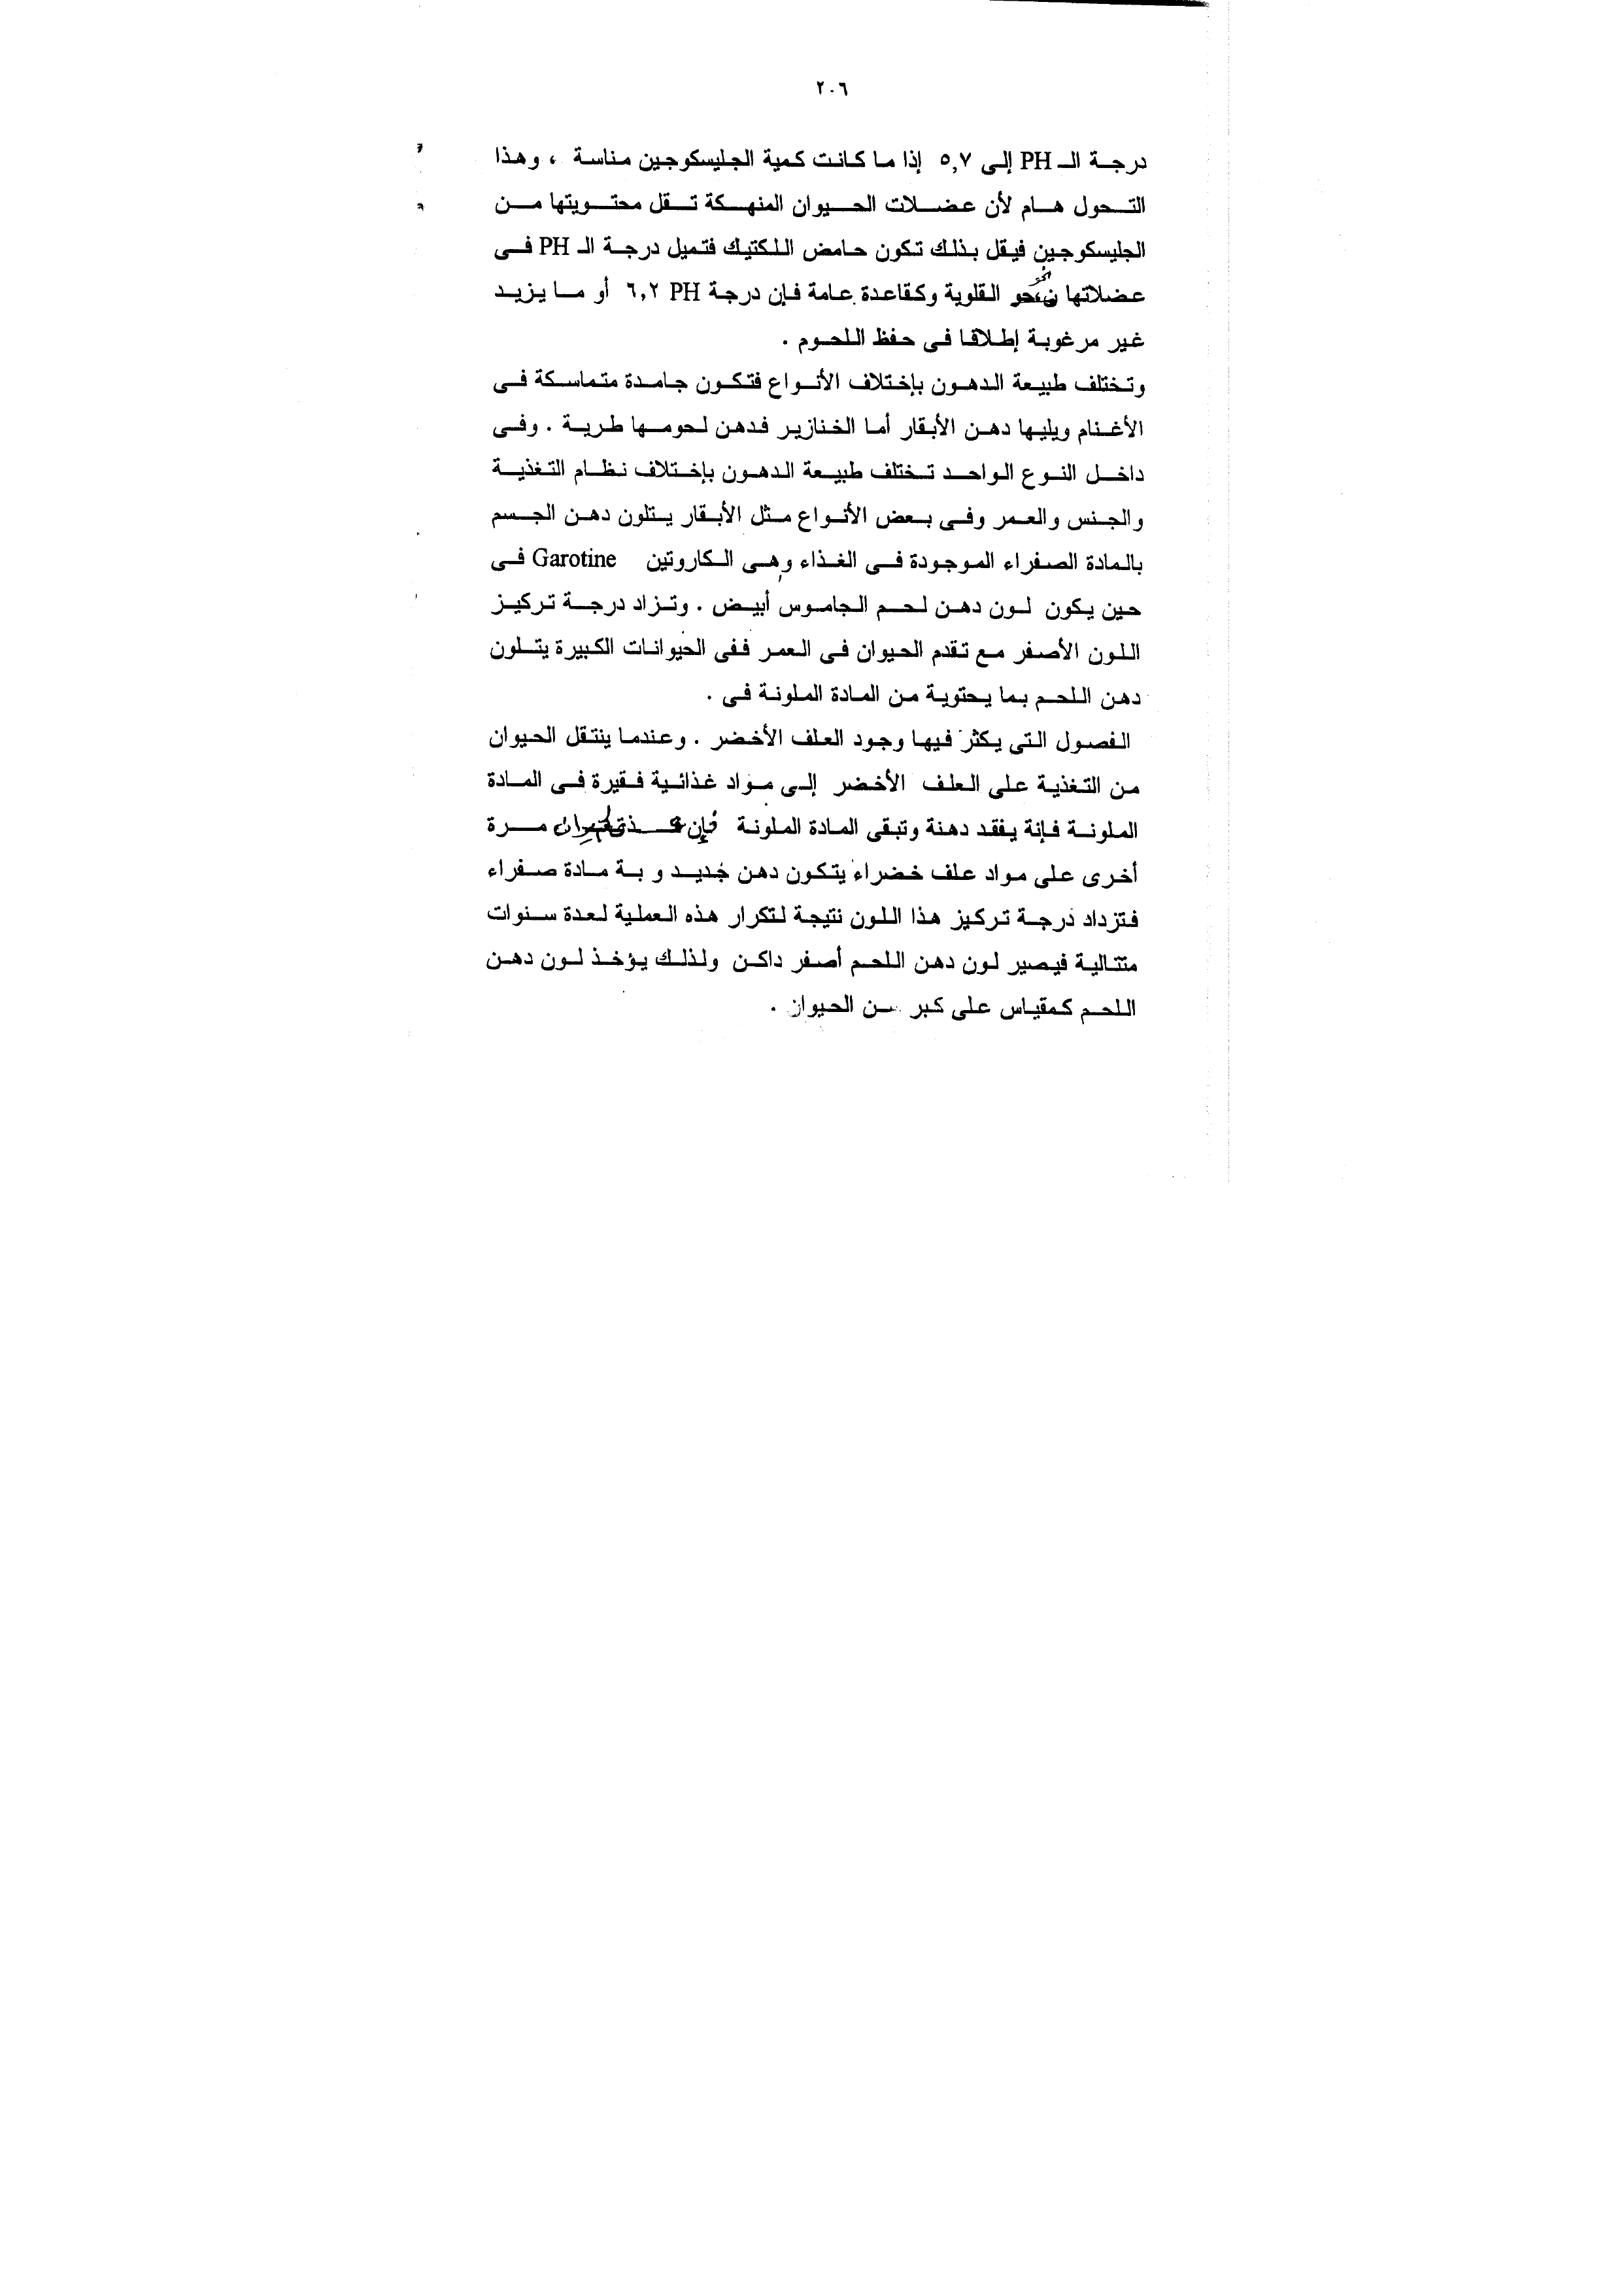 ٢٠٦
درجة الـ PH إلى ٥,٧ إذا ما كانت كمية الجليسكوجين مناسة ، وهذا
التحول هام لأن عضلات الحيوان المنهكة تقل محتويتها من
الجليسكوجين فيقل بذلك تكون حامض اللكتيك فتميل درجة الـ PH فى
عضلاتها نحو القلوية وكقاعدة عامة فإن درجة PH ٦,٢ أو ما يزيد
غير مرغوبة إطلاقا فى حفظ اللحوم .
وتختلف طبيعة الدهون بإختلاف الأنواع فتكون جامدة متماسكة فى
الأغنام ويليها دهن الأبقار أما الخنازير فدهن لحومها طرية . وفى
داخل النوع الواحد تختلف طبيعة الدهون بإختلاف نظام التغذية
والجنس والعمر وفى بعض الأنواع مثل الأبقار يتلون دهن الجسم
بالمادة الصفراء الموجودة فى الغذاء وهى الكاروتين Garotine فى
حين يكون لون دهن لحم الجاموس أبيض . وتزاد درجة تركيز
اللون الأصفر مع تقدم الحيوان فى العمر ففى الحيوانات الكبيرة يتلون
دهن اللحم بما يحتوية من المادة الملونة فى .
الفصول التى يكثر فيها وجود العلف الأخضر . وعندما ينتقل الحيوان
من التغذية على العلف الأخضر إلى مواد غذائية فقيرة فى المادة
الملونة فإنة يفقد دهنة وتبقى المادة الملونة فإن مرة
أخرى على مواد علف خضراء يتكون دهن جديد و بة مادة صفراء
فتزداد درجة تركيز هذا اللون نتيجة لتكرار هذه العملية لعدة سنوات
متتالية فيصير لون دهن اللحم أصفر داكن ولذلك يؤخذ لون دهن
اللحم كمقياس على كبر سن الحيوان .